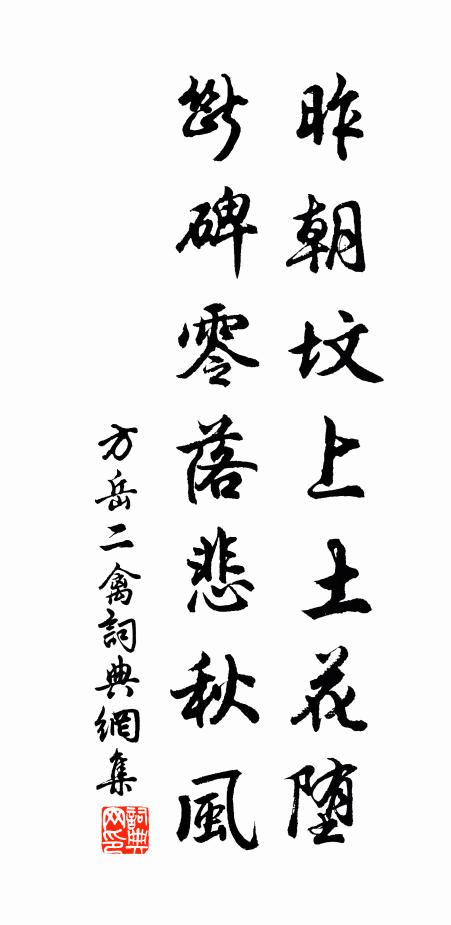 昨朝墳上土花堕
斷碑零落悲秋風
方岳二禽詞典網集
詞典网印